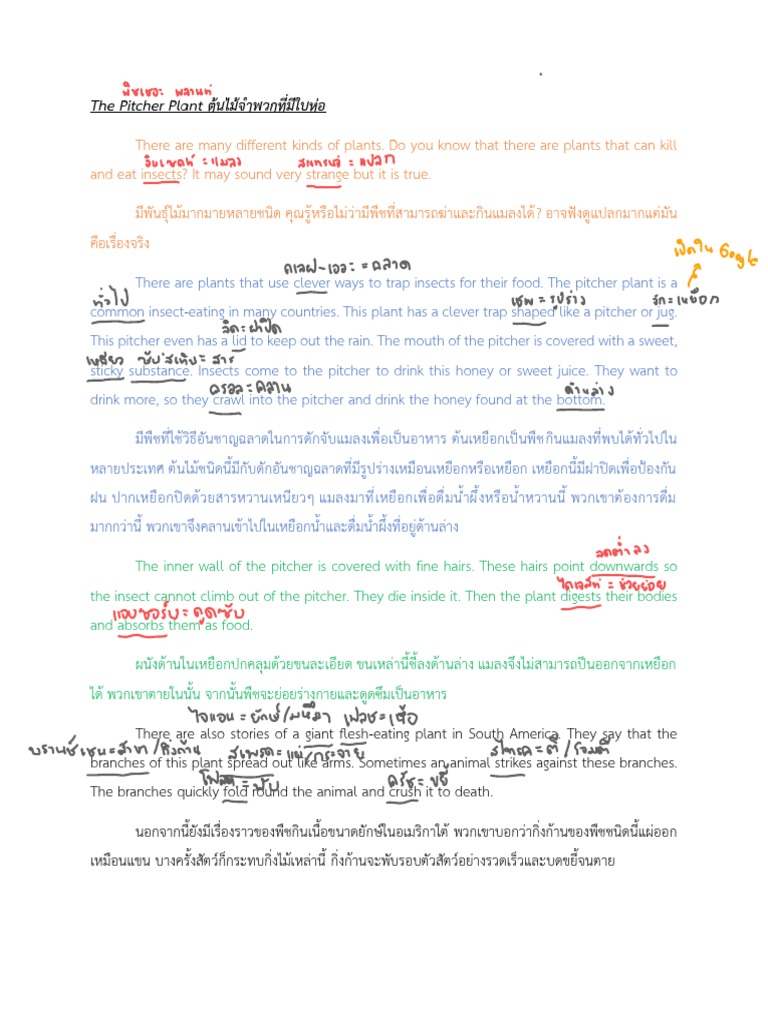 พิชเชอะ พลานท์
The Pitcher Plant ต้นไม้จำพวกที่มีใบห่อ
There are many different kinds of plants. Do you know that there are plants that can kill
อินเซคท์ = แมลง สแทรนจ์ = แปลก
and eat insects? It may sound very strange but it is true.
มีพันธุ์ไม้มากมายหลายชนิด คุณรู้หรือไม่ว่ามีพืชที่สามารถฆ่าและกินแมลงได้? อาจฟังดูแปลกมากแต่มัน
คือเรื่องจริง
เปิดใน Google
คเลฟ-เวอะ = ฉลาด
There are plants that use clever ways to trap insects for their food. The pitcher plant is a
ทั่วไป เชพ = รูปร่าง จัก = เหยือก
common insect-eating in many countries. This plant has a clever trap shaped like a pitcher or jug.
ลิด = ฝาปิด
This pitcher even has a lid to keep out the rain. The mouth of the pitcher is covered with a sweet,
เหนียว ซับ'สเทิน = สาร
sticky substance. Insects come to the pitcher to drink this honey or sweet juice. They want to
ครอล = คลาน ด้านล่าง
drink more, so they crawl into the pitcher and drink the honey found at the bottom.
มีพืชที่ใช้วิธีอันชาญฉลาดในการดักจับแมลงเพื่อเป็นอาหาร ต้นเหยือกเป็นพืชกินแมลงที่พบได้ทั่วไปใน
หลายประเทศ ต้นไม้ชนิดนี้มีกับดักอันชาญฉลาดที่มีรูปร่างเหมือนเหยือกหรือเหยือก เหยือกนี้มีฝาปิดเพื่อป้องกัน
ฝน ปากเหยือกปิดด้วยสารหวานเหนียวๆ แมลงมาที่เหยือกเพื่อดื่มน้ำผึ้งหรือน้ำหวานนี้ พวกเขาต้องการดื่ม
มากกว่านี้ พวกเขาจึงคลานเข้าไปในเหยือกน้ำและดื่มน้ำผึ้งที่อยู่ด้านล่าง
ลดต่ำลง
The inner wall of the pitcher is covered with fine hairs. These hairs point downwards so
ไดเจสท์ = ช่วยย่อย
the insect cannot climb out of the pitcher. They die inside it. Then the plant digests their bodies
แอบซอร์บ = ดูดซับ
and absorbs them as food.
ผนังด้านในเหยือกปกคลุมด้วยขนละเอียด ขนเหล่านี้ชี้ลงด้านล่าง แมลงจึงไม่สามารถปีนออกจากเหยือก
ได้ พวกเขาตายในนั้น จากนั้นพืชจะย่อยร่างกายและดูดซึมเป็นอาหาร
ไจแอน = ยักษ์/มหึมา เฟลช = เนื้อ
There are also stories of a giant flesh-eating plant in South America. They say that the
บรานช์เชน = สาขา/กิ่งก้าน สเพรด = แผ่/กระจาย สไทรค = ตี/โจมตี
branches of this plant spread out like arms. Sometimes an animal strikes against these branches.
โฟลด = พับ ครัช = ขยี้
The branches quickly fold round the animal and crush it to death.
นอกจากนี้ยังมีเรื่องราวของพืชกินเนื้อขนาดยักษ์ในอเมริกาใต้ พวกเขาบอกว่ากิ่งก้านของพืชชนิดนี้แผ่ออก
เหมือนแขน บางครั้งสัตว์ก็กระทบกิ่งไม้เหล่านี้ กิ่งก้านจะพับรอบตัวสัตว์อย่างรวดเร็วและบดขยี้จนตาย